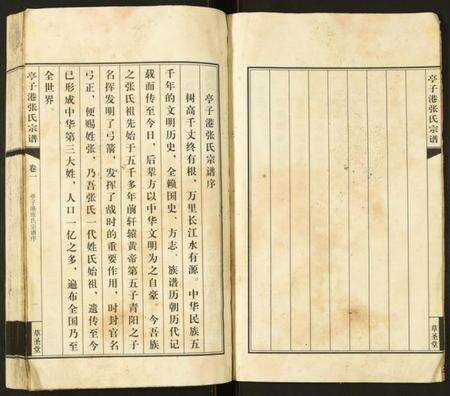 亭子港张氏宗谱序
树高千丈终有根，万里长江水有源。中华民族五
千年的文明历史，全赖国史、方志、族谱历朝历代记
载而传至今日，后辈方以中华文明为之自豪。今吾族
之张氏祖先始于五千多年前轩辕黄帝第五子青阳之子
名挥发明了弓箭，发挥了战时的重要作用，时封官名
弓正，便赐姓张，乃吾张氏一代姓氏始祖，遗传至今
已形成中华第三大姓，人口一亿之多，遍布全国乃至
全世界。
亭子港张氏宗谱
卷一
亭子港张氏宗谱序
亭子港张氏宗谱
草圣堂